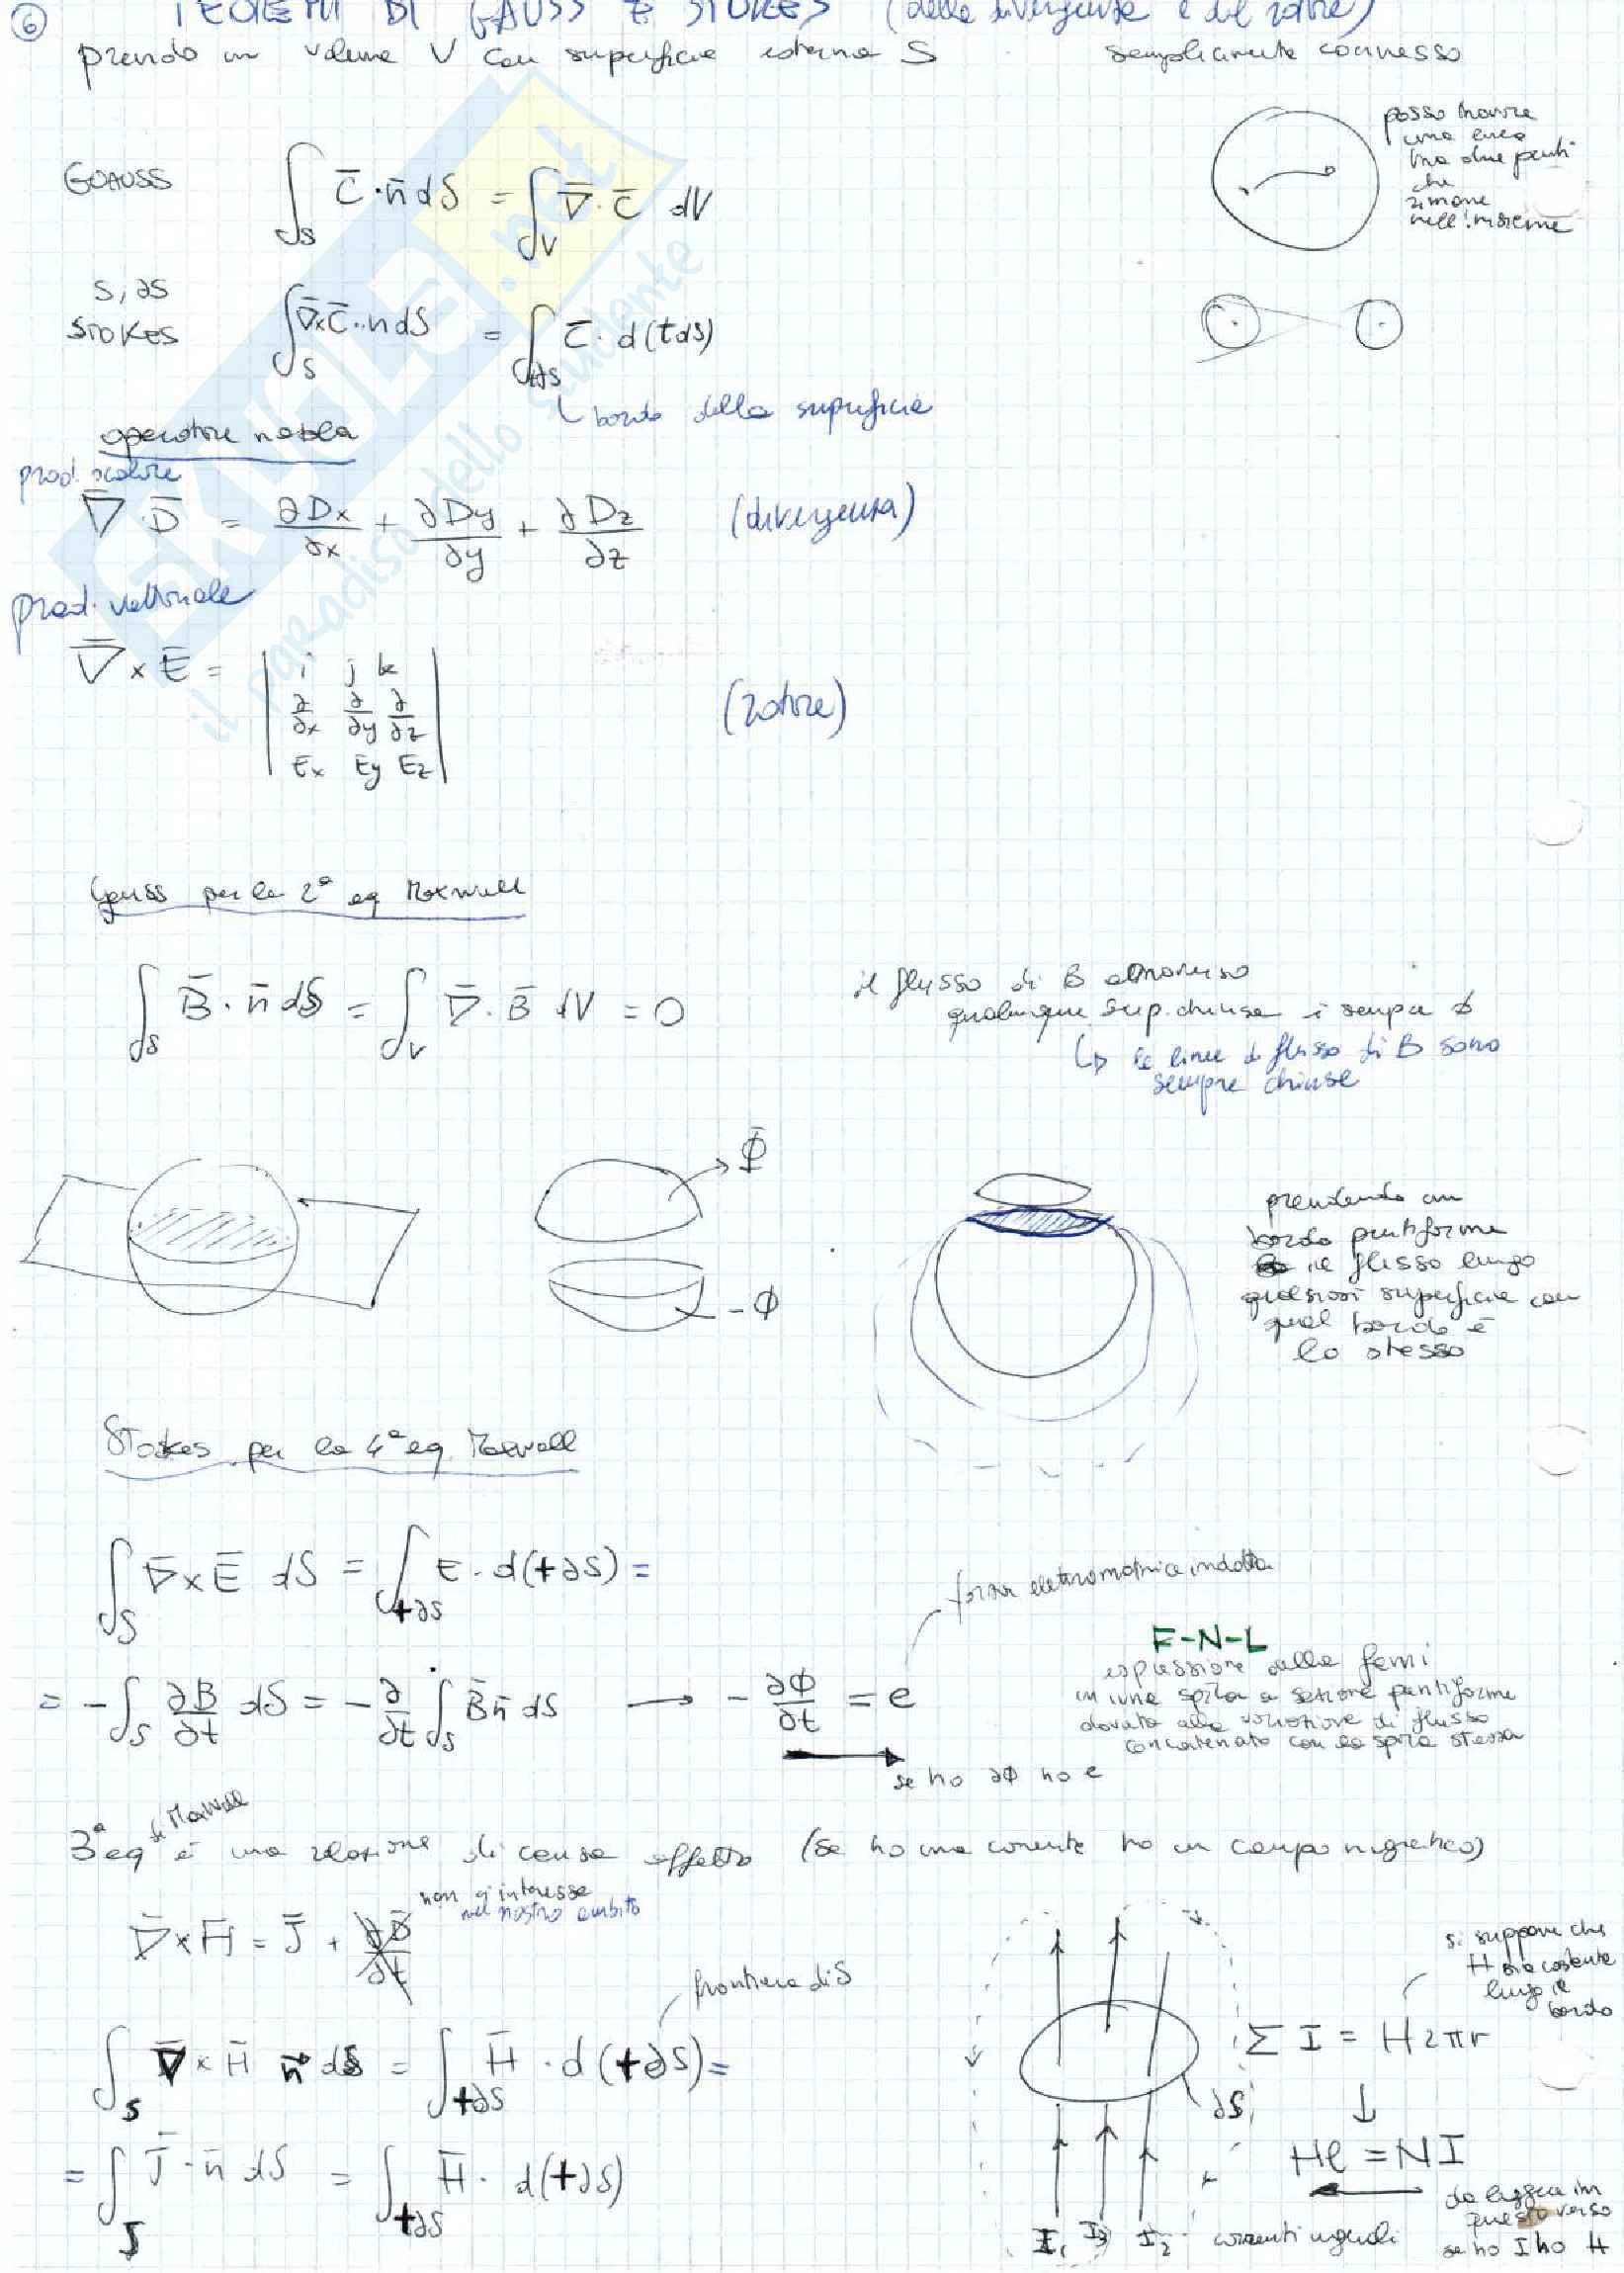 6
TEOREMI DI GAUSS E STOKES (della divergenza e del rotore)
prendo un volume V con superficie esterna S semplicemente connesso
posso trovare
una linea
tra due punti
che
rimane
nell'insieme
GAUSS ∫_S C̄·n̄ dS = ∫_V ∇̄·C̄ dV
S, ∂S
STOKES ∫_S ∇̄×C̄·n dS = ∫_{+∂S} C̄·d(tds)
bordo della superficie
operatore nabla
prod. scalare
∇̄·D̄ = ∂Dx/∂x + ∂Dy/∂y + ∂Dz/∂z (divergenza)
prod. vettoriale
∇̄×Ē = | i j k
∂/∂x ∂/∂y ∂/∂z
Ex Ey Ez | (rotore)
SKUOLA.net
il paradiso dello studente
Gauss per la 2ª eq Maxwell
∫_S B̄·n̄ dS = ∫_V ∇̄·B̄ dV = 0
il flusso di B attraverso
qualunque sup. chiusa è sempre ø
↳ le linee di flusso di B sono
sempre chiuse
Φ̄
-Φ
prendendo un
bordo puntiforme
il flusso lungo
qualsiasi superficie con
quel bordo è
lo stesso
Stokes per la 4ª eq. Maxwell
∫_S ∇̄×Ē dS = ∫_{+∂S} E·d(+∂S) =
forza elettromotrice indotta
= -∫_S ∂B/∂t dS = -∂/∂t ∫_S B̄ n̄ dS → -∂Φ/∂t = e
se ho ∂Φ ho e
F-N-L
espressione della fem i
in una spira a sezione puntiforme
dovuta alla variazione di flusso
concatenato con la spira stessa
3ª eq di Maxwell è una relazione di causa effetto (se ho una corrente ho un campo magnetico)
∇̄×H̄ = J̄ + ∂D̄/∂t
non ci interessa
nel nostro ambito
frontiera di S
∫_S ∇̄×H̄ n̄ dS = ∫_{+∂S} H̄·d(+∂S) =
= ∫_S J̄·n̄ dS = ∫_{+∂S} H̄·d(+∂S)
si suppone che
H sia costante
lungo il
bordo
Σ I = H2πr
∂S
↓
Hl = NI
da leggere in
questo verso
se ho I ho H
I₁ I₃ I₂ correnti uguali